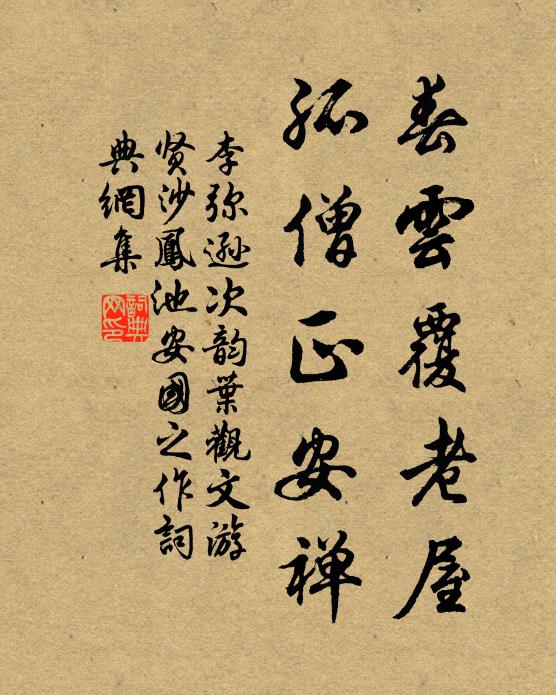 春雲覆老屋
孤僧正安禅
李弥遜次韵葉觀文游
贤沙鳳池安國之作詞
典網集
詞典网印